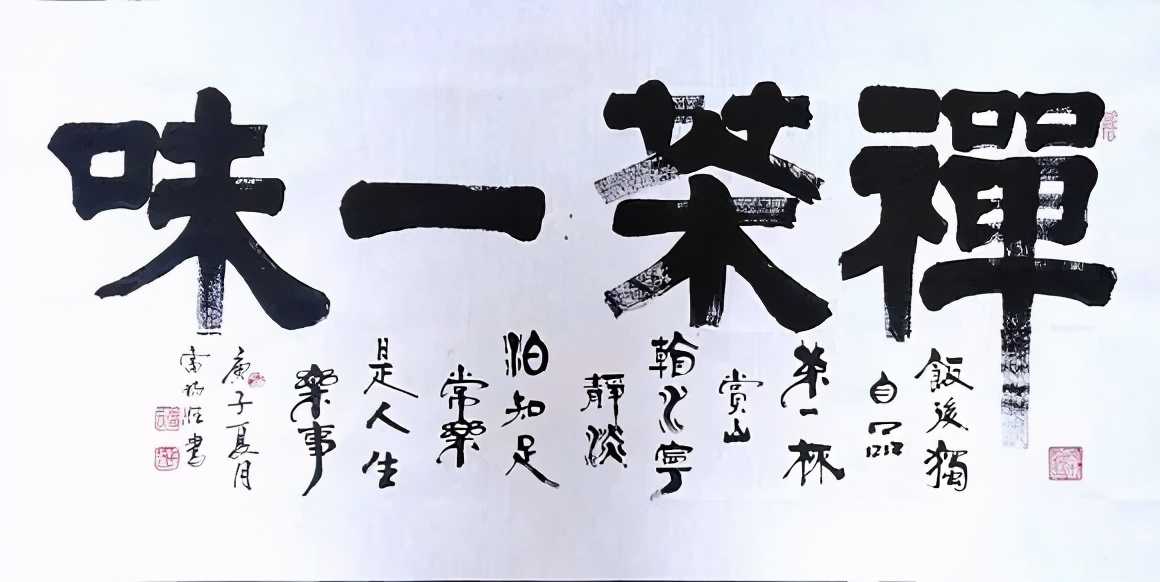 禪茶一味
飯後獨
自品
茶一杯
賞山
水寧
靜淡
泊知足
常樂
是人生
樂事
庚子夏月
書